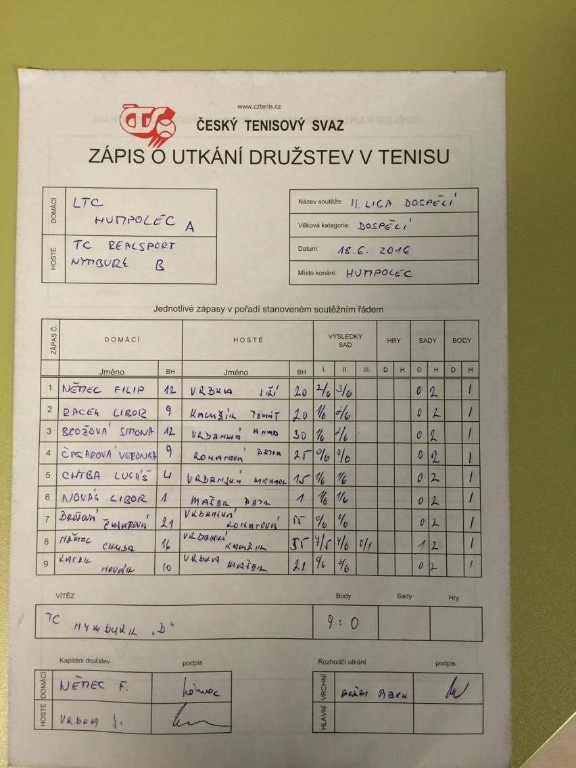 www.cztenis.cz
ČTS
ČESKÝ TENISOVÝ SVAZ
ZÁPIS O UTKÁNÍ DRUŽSTEV V TENISU
DOMÁCÍ LTC HUMPOLEC A
HOSTÉ TC REALSPORT NYMBURK B
Název soutěže: II. LIGA DOSPĚLÍ
Věková kategorie: DOSPĚLÍ
Datum: 18.6. 2016
Místo konání: HUMPOLEC
Jednotlivé zápasy v pořadí stanoveném soutěžním řádem
ZÁPAS Č. DOMÁCÍ HOSTÉ VÝSLEDKY SAD HRY SADY BODY
Jméno BH Jméno BH I. II. III. D H D H D H
1 NĚMEC FILIP 12 VRBKA JIŘÍ 20 2/6 3/6 0 2 1
2 RACEK LIBOR 9 TOMÁŠ 20 1/6 0/6 0 2 1
3 BROŽOVÁ SIMONA 12 30 1/6 0 2 1
4 VERONIKA 9 ROMANOVÁ 25 0/6 0/6 0 2 1
5 CHYBA LUKÁŠ 4 MICHAEL 15 1/6 1/6 0 2 1
6 NOVÁK LIBOR 1 MAŠEK PETR 1 1/6 1/6 0 2 1
7 21 ROMANOVÁ 55 0/6 0 2 1
8 NĚMEC CHYBA 16 35 0/1 1 2 1
9 RACEK NOVÁK 10 VRBKA MAŠEK 21 0 2 1
VÍTĚZ Body Sady Hry
TC NYMBURK „B" 9:0
Kapitáni družstev podpis Rozhodčí utkání podpis
DOMÁCÍ NĚMEC F. VRCHNÍ
HOSTÉ VRBKA J. HLAVNÍ